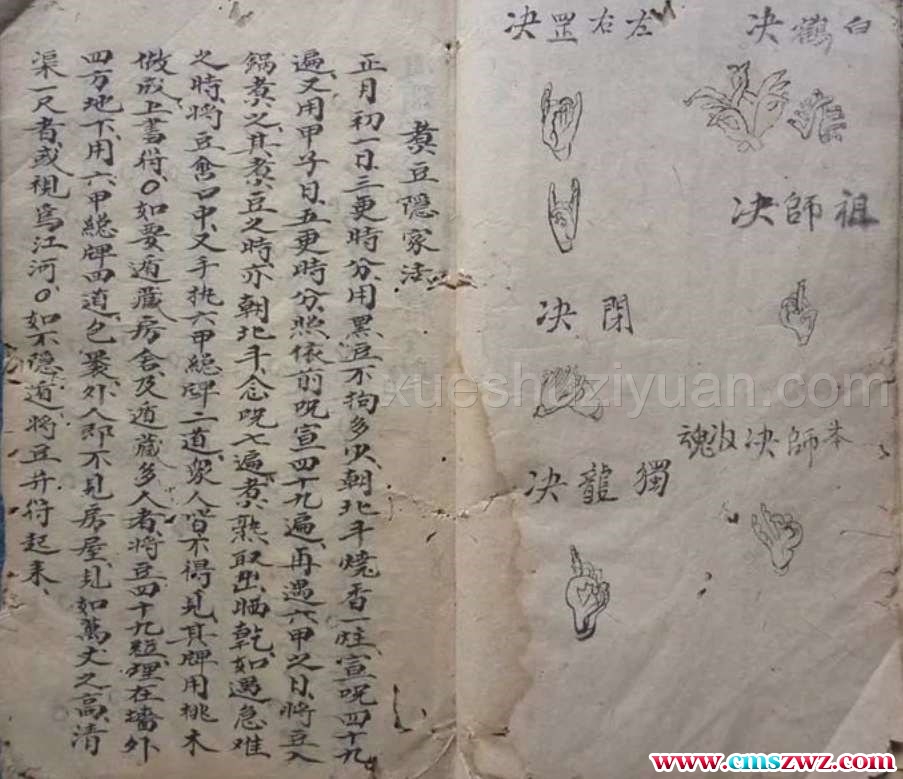 白鶴决
祖師决
本師决收魂
左右罡决
閉决
獨龍决
煑豆隱家法
正月初一日、三更時分、用黑豆不拘多少、朝北斗燒香一炷、宣咒四十九
遍、又用甲子日、五更時分、照依前咒宣四十九遍、再遇六甲之日、將豆入
鍋煑之、其煑豆之時、亦朝北斗、念咒七遍、煑熟、取出、晒乾、如遇急难
之時、將豆含口中、又手执六甲總牌二道、眾人皆不得見、其牌用桃木
做成、上書符、〇如要遁藏房舍、及遁藏多人者、將豆四十九粒、埋在墻外
四方地下、用六甲總牌四道、包裹、外人即不見房屋、見如萬丈之高、清
渠一尺者、或視為江河、〇如不隱遁、將豆并符起来、
xueshuziyuan.com
www.cmszwz.com